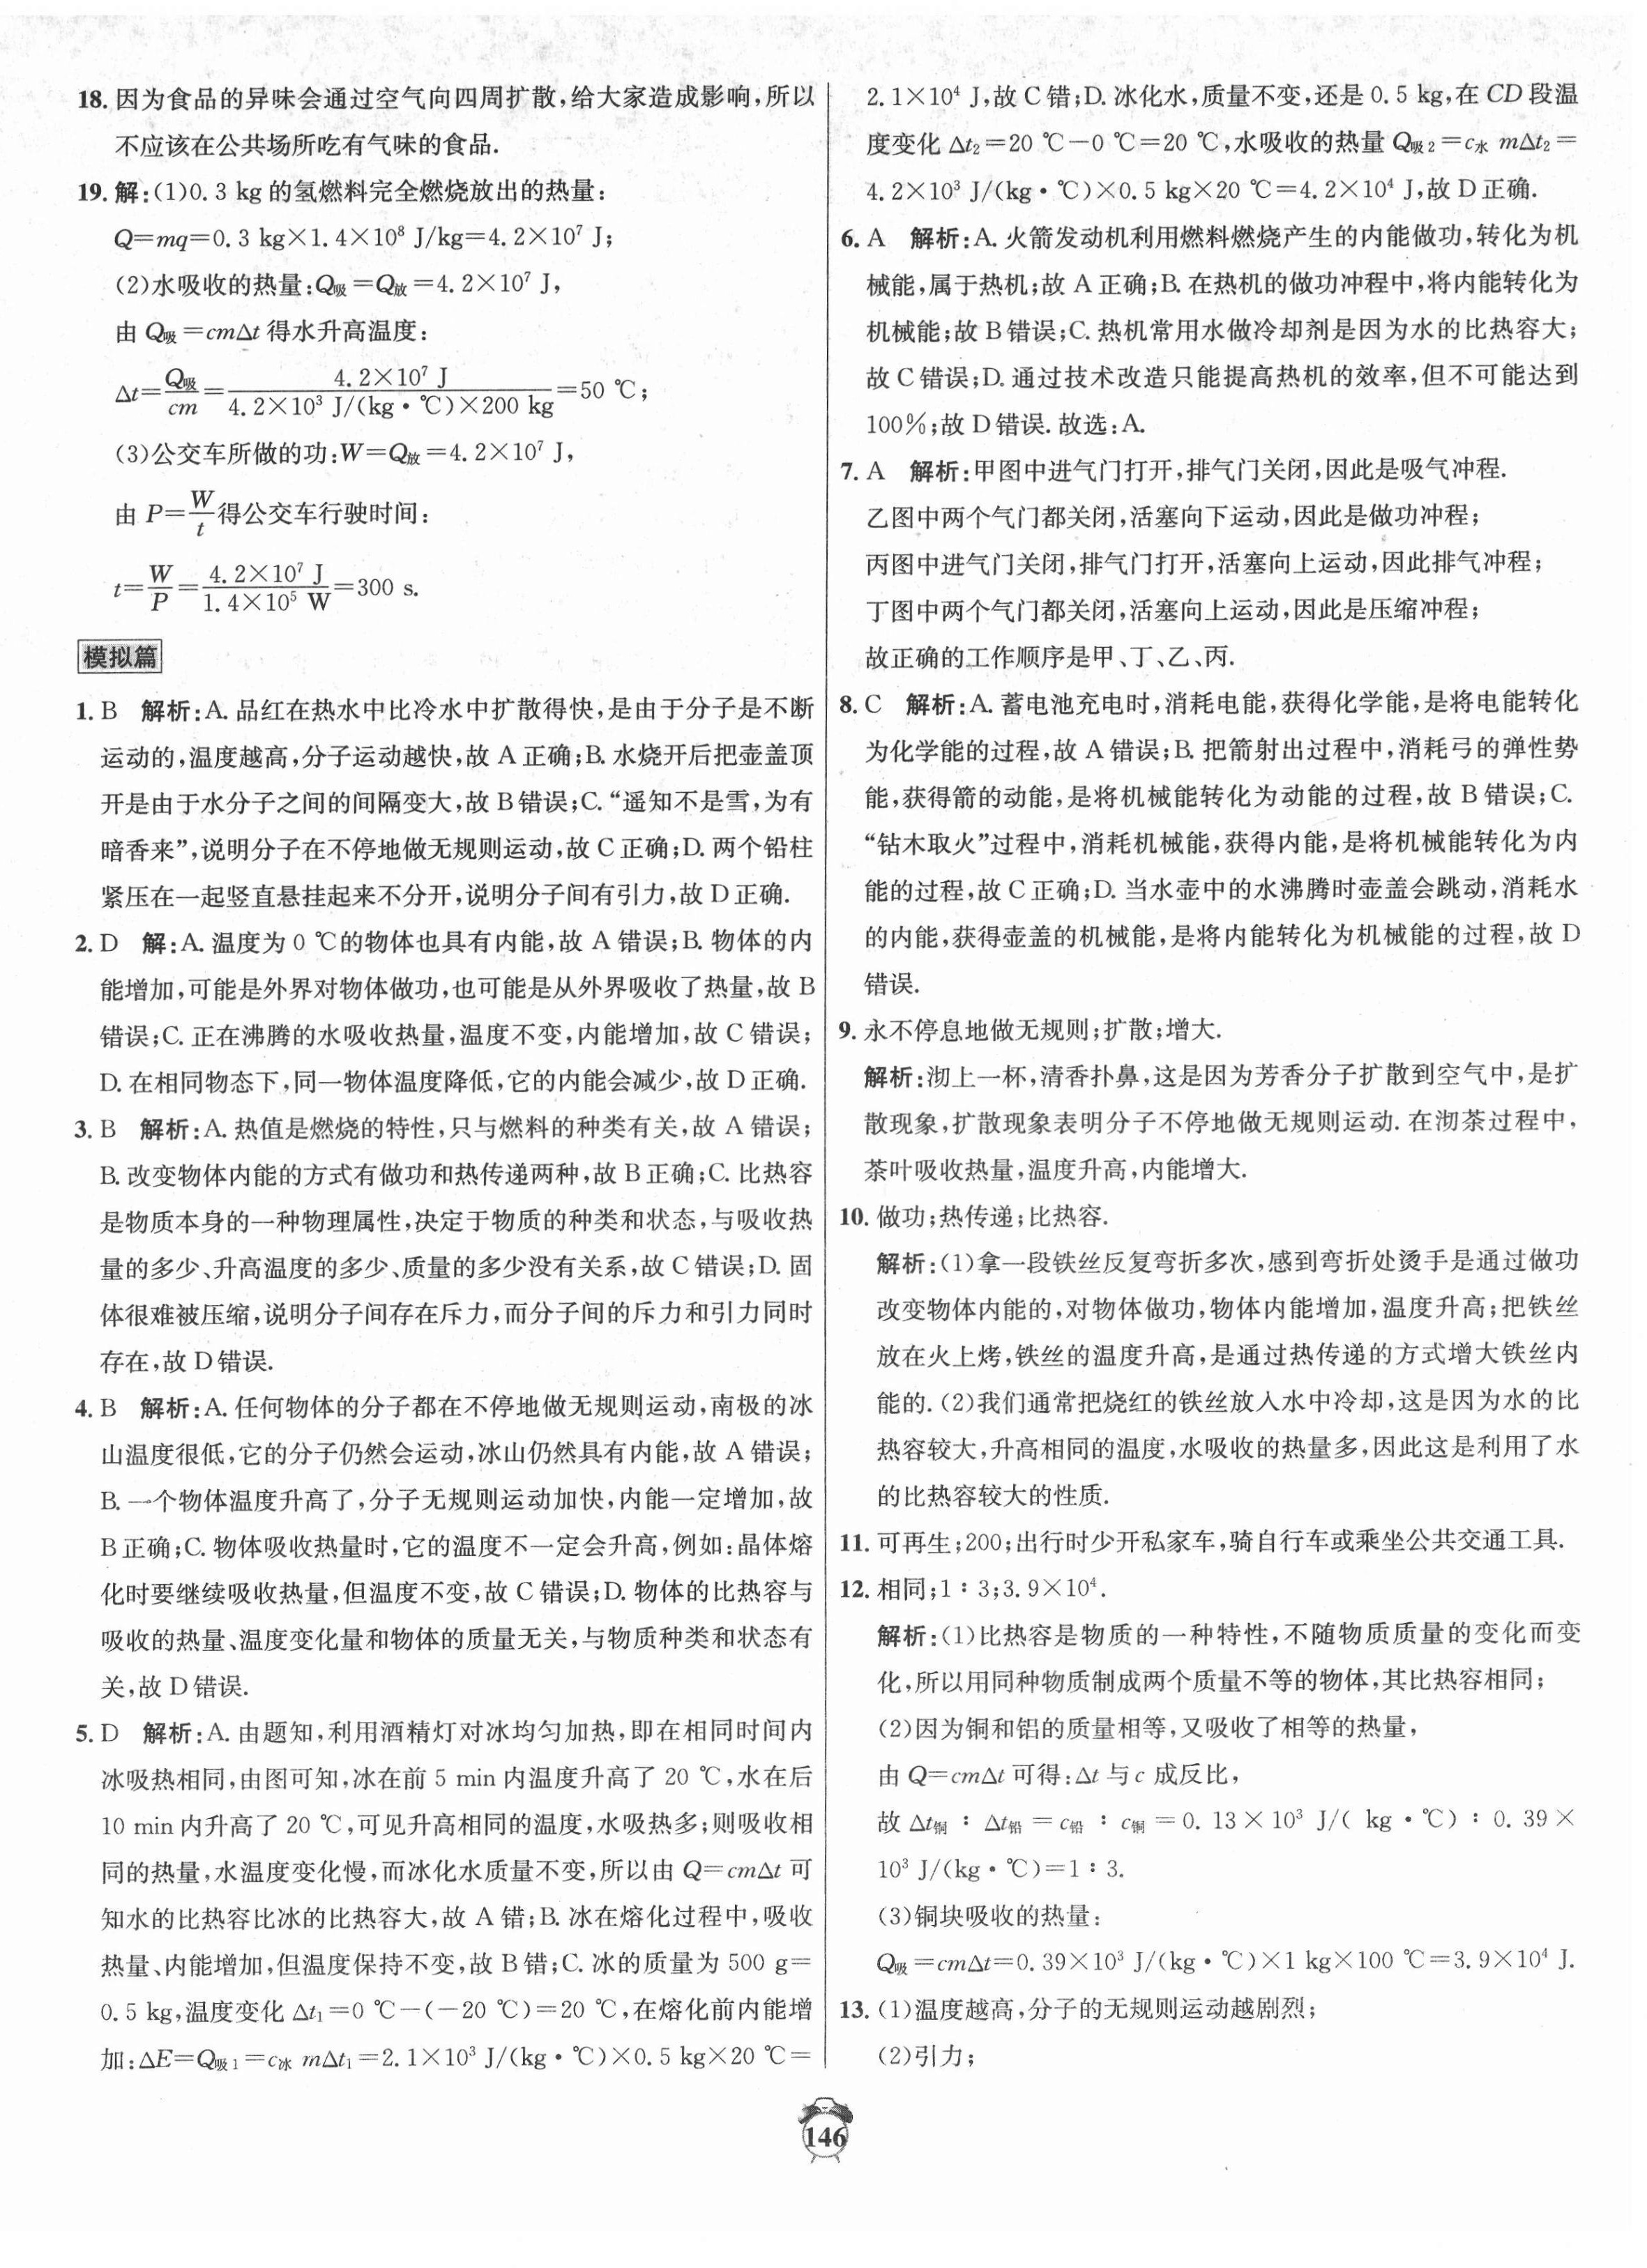 18. 因为食品的异味会通过空气向四周扩散,给大家造成影响,所以
不应该在公共场所吃有气味的食品.
19. 解:(1)0.3 kg 的氢燃料完全燃烧放出的热量:
Q=mq=0.3 kg×1.4×10⁸ J/kg=4.2×10⁷ J;
(2)水吸收的热量:Q吸=Q放=4.2×10⁷ J,
由 Q吸=cmΔt 得水升高温度:
Δt=Q吸/cm=4.2×10⁷ J/4.2×10³ J/(kg·℃)×200 kg=50 ℃;
(3)公交车所做的功:W=Q放=4.2×10⁷ J,
由 P=W/t 得公交车行驶时间:
t=W/P=4.2×10⁷ J/1.4×10⁵ W=300 s.
模拟篇
1. B 解析:A. 品红在热水中比冷水中扩散得快,是由于分子是不断
运动的,温度越高,分子运动越快,故 A 正确;B. 水烧开后把壶盖顶
开是由于水分子之间的间隔变大,故 B 错误;C.“遥知不是雪,为有
暗香来”,说明分子在不停地做无规则运动,故 C 正确;D. 两个铅柱
紧压在一起竖直悬挂起来不分开,说明分子间有引力,故 D 正确.
2. D 解:A. 温度为 0 ℃的物体也具有内能,故 A 错误;B. 物体的内
能增加,可能是外界对物体做功,也可能是从外界吸收了热量,故 B
错误;C. 正在沸腾的水吸收热量,温度不变,内能增加,故 C 错误;
D. 在相同物态下,同一物体温度降低,它的内能会减少,故 D 正确.
3. B 解析:A. 热值是燃烧的特性,只与燃料的种类有关,故 A 错误;
B. 改变物体内能的方式有做功和热传递两种,故 B 正确;C. 比热容
是物质本身的一种物理属性,决定于物质的种类和状态,与吸收热
量的多少、升高温度的多少、质量的多少没有关系,故 C 错误;D. 固
体很难被压缩,说明分子间存在斥力,而分子间的斥力和引力同时
存在,故 D 错误.
4. B 解析:A. 任何物体的分子都在不停地做无规则运动,南极的冰
山温度很低,它的分子仍然会运动,冰山仍然具有内能,故 A 错误;
B. 一个物体温度升高了,分子无规则运动加快,内能一定增加,故
B 正确;C. 物体吸收热量时,它的温度不一定会升高,例如:晶体熔
化时要继续吸收热量,但温度不变,故 C 错误;D. 物体的比热容与
吸收的热量、温度变化量和物体的质量无关,与物质种类和状态有
关,故 D 错误.
5. D 解析:A. 由题知,利用酒精灯对冰均匀加热,即在相同时间内
冰吸热相同,由图可知,冰在前 5 min 内温度升高了 20 ℃,水在后
10 min 内升高了 20 ℃,可见升高相同的温度,水吸热多;则吸收相
同的热量,水温度变化慢,而冰化水质量不变,所以由 Q=cmΔt 可
知水的比热容比冰的比热容大,故 A 错;B. 冰在熔化过程中,吸收
热量、内能增加,但温度保持不变,故 B 错;C. 冰的质量为 500 g=
0.5 kg,温度变化 Δt₁=0 ℃-(-20 ℃)=20 ℃,在熔化前内能增
加:ΔE=Q吸1=c冰 mΔt₁=2.1×10³ J/(kg·℃)×0.5 kg×20 ℃=
2.1×10⁴ J,故 C 错;D. 冰化水,质量不变,还是 0.5 kg,在 CD 段温
度变化 Δt₂=20 ℃-0 ℃=20 ℃,水吸收的热量 Q吸2=c水 mΔt₂=
4.2×10³ J/(kg·℃)×0.5 kg×20 ℃=4.2×10⁴ J,故 D 正确.
6. A 解析:A. 火箭发动机利用燃料燃烧产生的内能做功,转化为机
械能,属于热机;故 A 正确;B. 在热机的做功冲程中,将内能转化为
机械能;故 B 错误;C. 热机常用水做冷却剂是因为水的比热容大;
故 C 错误;D. 通过技术改造只能提高热机的效率,但不可能达到
100%;故 D 错误. 故选:A.
7. A 解析:甲图中进气门打开,排气门关闭,因此是吸气冲程.
乙图中两个气门都关闭,活塞向下运动,因此是做功冲程;
丙图中进气门关闭,排气门打开,活塞向上运动,因此排气冲程;
丁图中两个气门都关闭,活塞向上运动,因此是压缩冲程;
故正确的工作顺序是甲、丁、乙、丙.
8. C 解析:A. 蓄电池充电时,消耗电能,获得化学能,是将电能转化
为化学能的过程,故 A 错误;B. 把箭射出过程中,消耗弓的弹性势
能,获得箭的动能,是将机械能转化为动能的过程,故 B 错误;C.
“钻木取火”过程中,消耗机械能,获得内能,是将机械能转化为内
能的过程,故 C 正确;D. 当水壶中的水沸腾时壶盖会跳动,消耗水
的内能,获得壶盖的机械能,是将内能转化为机械能的过程,故 D
错误.
9. 永不停息地做无规则;扩散;增大.
解析:沏上一杯,清香扑鼻,这是因为芳香分子扩散到空气中,是扩
散现象,扩散现象表明分子不停地做无规则运动. 在沏茶过程中,
茶叶吸收热量,温度升高,内能增大.
10. 做功;热传递;比热容.
解析:(1)拿一段铁丝反复弯折多次,感到弯折处烫手是通过做功
改变物体内能的,对物体做功,物体内能增加,温度升高;把铁丝
放在火上烤,铁丝的温度升高,是通过热传递的方式增大铁丝内
能的.(2)我们通常把烧红的铁丝放入水中冷却,这是因为水的比
热容较大,升高相同的温度,水吸收的热量多,因此这是利用了水
的比热容较大的性质.
11. 可再生;200;出行时少开私家车,骑自行车或乘坐公共交通工具.
12. 相同;1∶3;3.9×10⁴.
解析:(1)比热容是物质的一种特性,不随物质质量的变化而变
化,所以用同种物质制成两个质量不等的物体,其比热容相同;
(2)因为铜和铝的质量相等,又吸收了相等的热量,
由 Q=cmΔt 可得:Δt 与 c 成反比,
故 Δt铜∶Δt铅=c铅∶c铜=0.13×10³ J/(kg·℃)∶0.39×
10³ J/(kg·℃)=1∶3.
(3)铜块吸收的热量:
Q吸=cmΔt=0.39×10³ J/(kg·℃)×1 kg×100 ℃=3.9×10⁴ J.
13. (1)温度越高,分子的无规则运动越剧烈;
(2)引力;
146